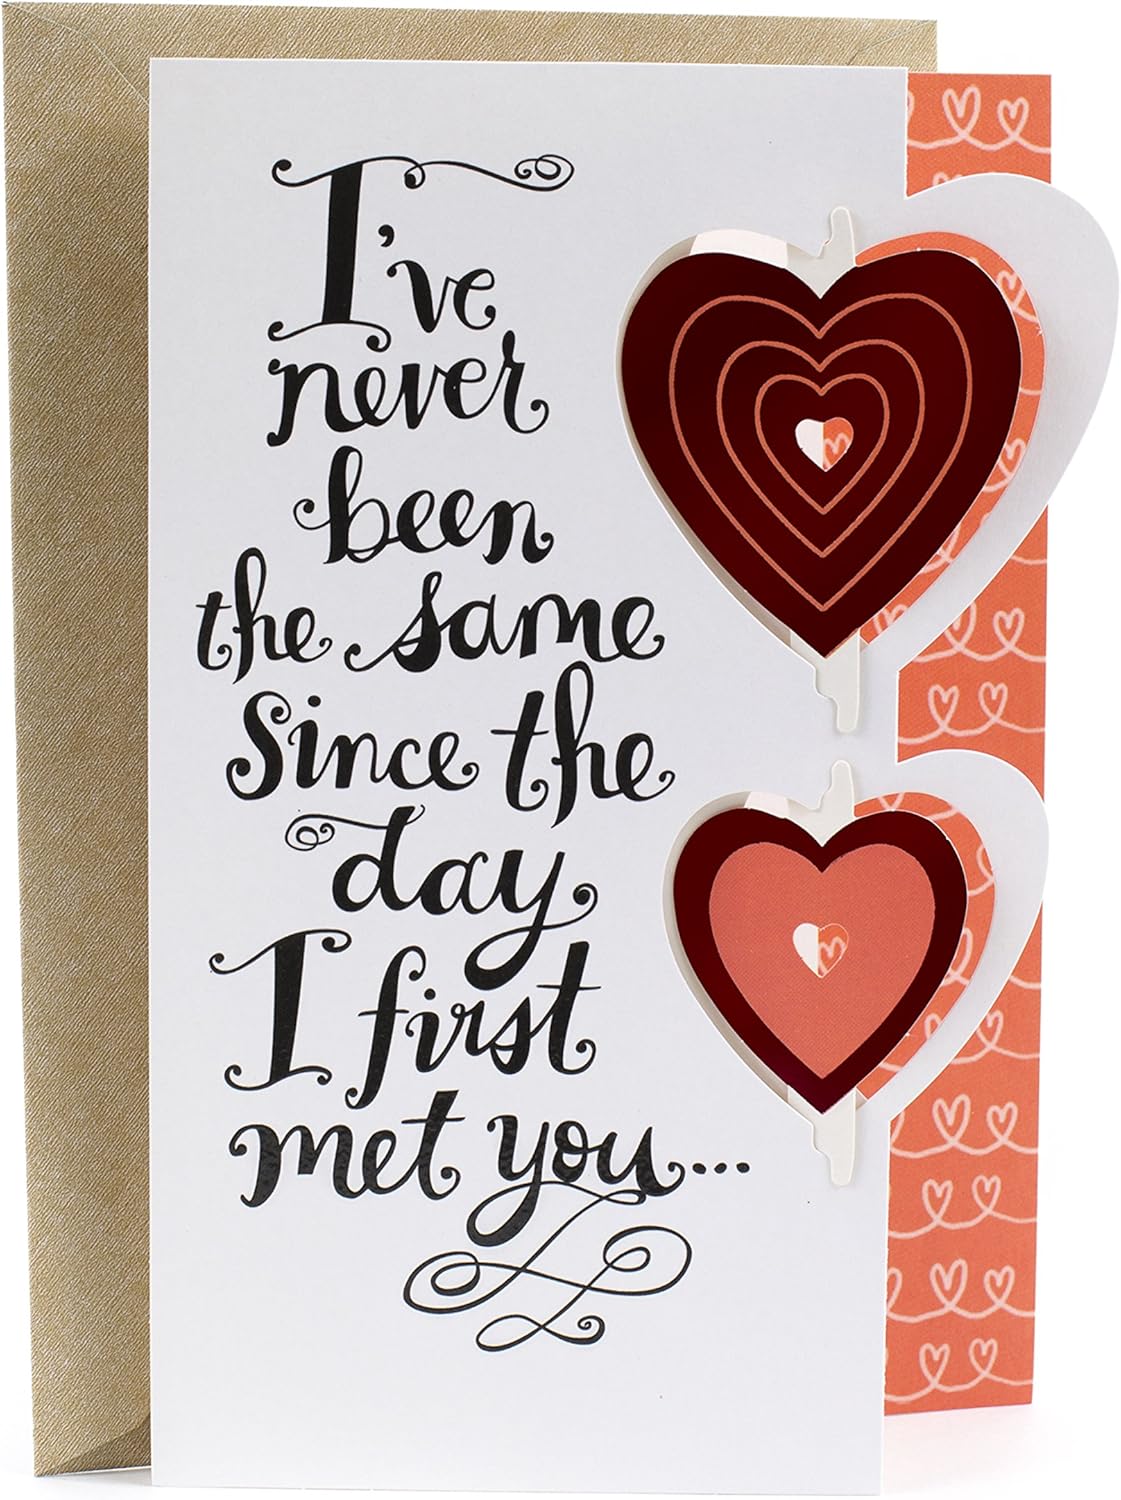 I've
never
been
the same
since the
day
I first
met you...